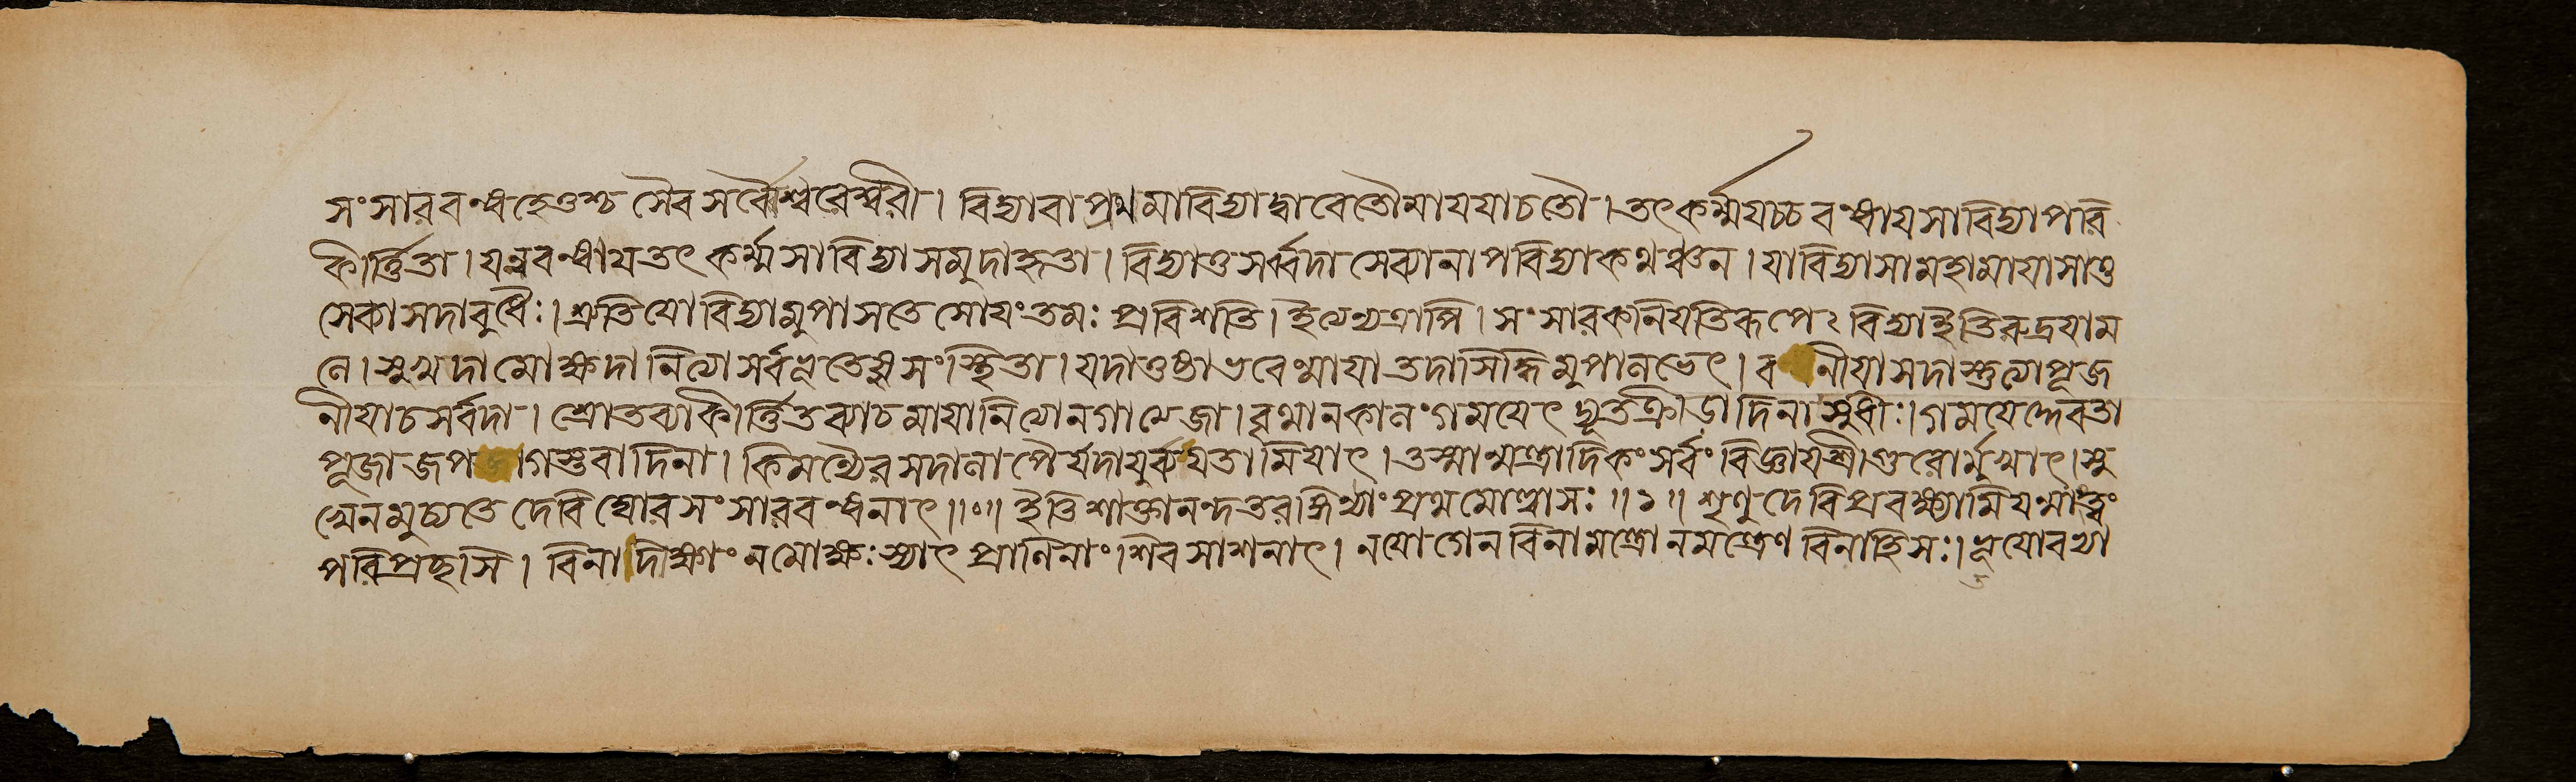 সংসারবন্ধহেতুশ্চ সৈব সর্ব্বেশ্বরেশ্বরী। বিদ্যাবাপ্রথমাবিদ্যাদ্বাবেতৌমাযযাচতৌ। তৎকর্ম্মযচ্চবন্ধাযসাবিদ্যাপরি
কীর্ত্তিতা। যন্নবন্ধাযতৎ কর্ম্মসাবিদ্যাসমুদাহৃতা। বিদ্যাতুসর্ব্বদাসেব্যানাপবিদ্যাকথঞ্চন। যাবিদ্যাসামহামাযাসাতু
সেব্যাসদাবুধৈঃ। শ্রুতি যো বিদ্যামুপাসতে সোযংতমঃ প্রবিশতি। ইত্যেতত্রাপি। সংসারকনিযতিরূপে২ বিদ্যাইতিরুদ্রযাম
লে। সুখদামোক্ষদা নিত্যা সর্বভূতেষুসংস্থিতা। যদাতুষ্টাভবেন্মাযা তদাসিদ্ধিমুপালভেৎ। ব নীযাসদাস্তুত্যাপূজ
নীযাচসর্বদা। শ্রোতব্যাকীর্ত্তিতব্যাচমাযানিত্যানগাত্মজা। বৃথানকালংগমযেৎ দ্যূতক্রীড়াদিনাসুধীঃ। গমযেদ্দেবতা
পূজাজপ গস্তবাদিনা। কিমন্যৈরসদালাপৈর্যদাযুর্ব্যযতামিযাৎ। তস্মান্মন্ত্রাদিকংসর্বং বিজ্ঞাযশ্রীগুরোর্মুখাৎ। সু
খেনমুচ্যতে দেবিঘোরসংসারবন্ধনাৎ॥০॥ ইতিশাক্তানন্দতরঙ্গিণ্যাংপ্রথমোল্লাসঃ॥১॥ শৃণুদেবিপ্রবক্ষ্যামিযন্মাংত্বং
পরিপ্রচ্ছসি। বিনাদিক্ষাং নমোক্ষঃস্যাৎ প্রাণিনাং। শিবসাশনাৎ। নযোগেনবিনামন্ত্রো নমন্ত্রেণ বিনাহিসঃ। দ্বযোরভ্যা